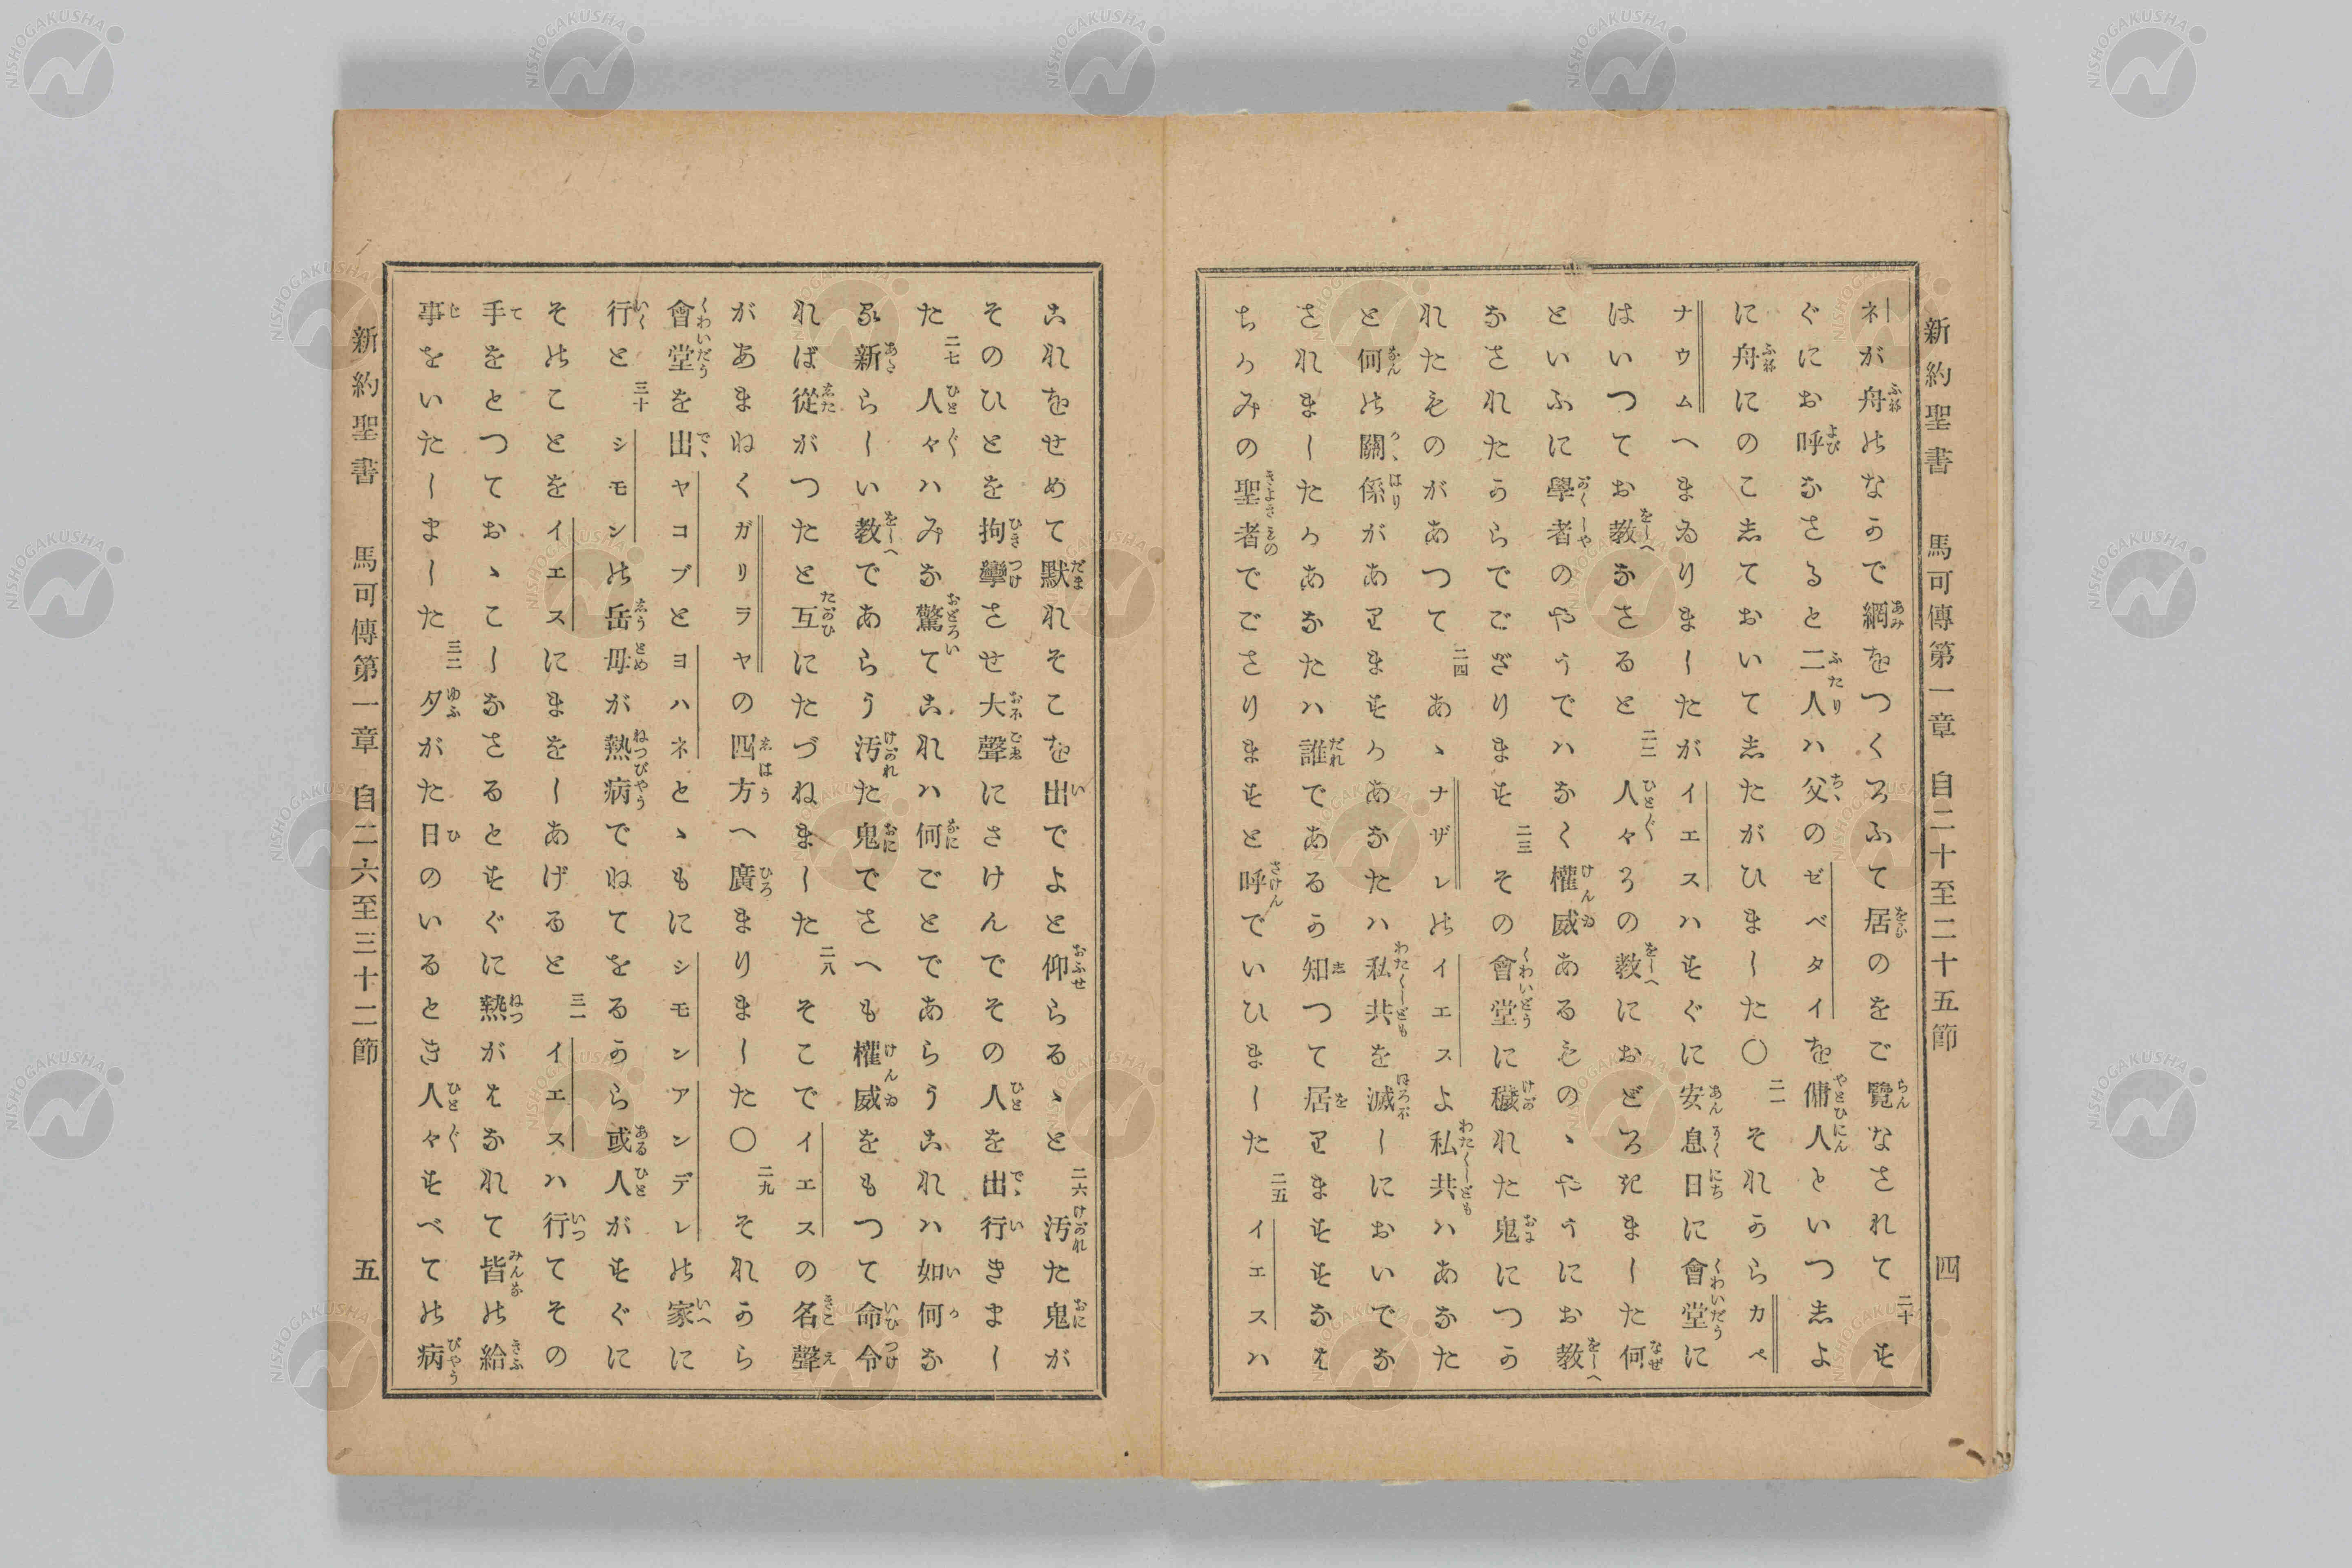 新約聖書 馬可傳第一章 自二十至二十五節 四
ネが舟のなかで網をつくろふて居のをご覽なされて二十す
ぐにお呼なさると二人ハ父のゼベタイを傭人といつしよ
に舟にのこしておいてしたがひました〇二一それからカペ
ナウムへまゐりましたがイエスハすぐに安息日に會堂に
はいつてお教なさると二二人々その教におどろきました何
といふに學者のやうでハなく權威あるものゝやうにお教
なされたからでござります二三その會堂に穢れた鬼につか
れたものがあつて二四あゝナザレのイエスよ私共ハあなた
と何の關係がありますかあなたハ私共を滅しにおいでな
されましたかあなたハ誰であるか知つて居りますすなは
ちかみの聖者でござりますと呼でいひました二五イエスハ
これをせめて默れそこを出でよと仰らるゝと二六汚た鬼が
そのひとを拘攣させ大聲にさけんでその人を出行きまし
た二七人々ハみな驚てこれハ何ごとであらうこれハ如何な
る新らしい教であらう汚た鬼でさへも權威をもつて命令
れば從がつたと互にたづねました二八そこでイエスの名聲
があまねくガリラヤの四方へ廣まりました〇二九それから
會堂を出ヤコブとヨハネとゝもにシモンアンデレの家に
行と三十シモンの岳母が熱病でねてをるから或人がすぐに
そのことをイエスにまをしあげると三一イエスハ行てその
手をとつておゝこしなさるとすぐに熱がはなれて皆の給
事をいたしました三二夕がた日のいるとき人々すべての病
新約聖書 馬可傳第一章 自二六至三十二節 五